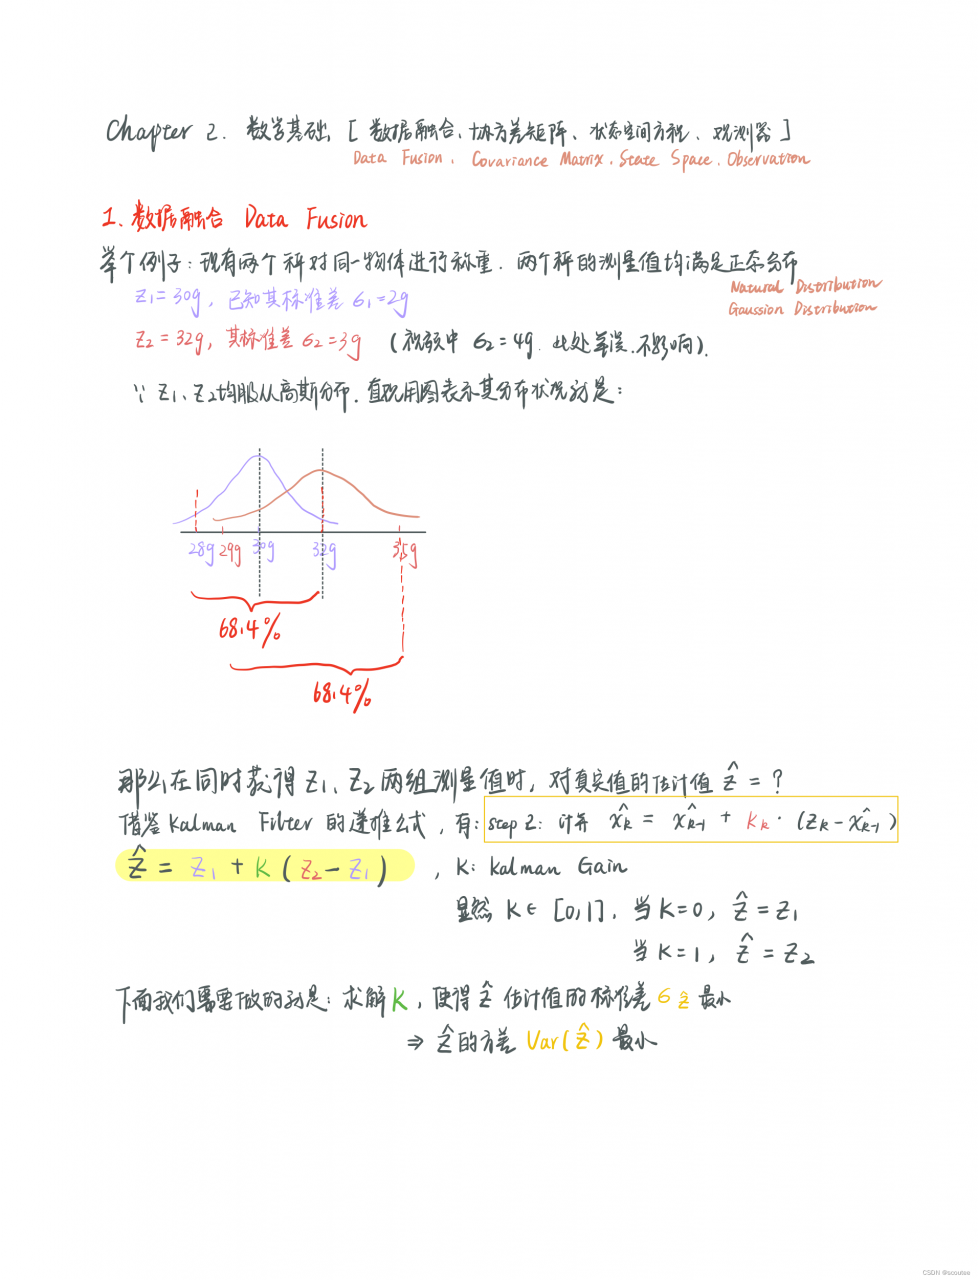 Chapter 2. 数学基础 [ 数据融合、协方差矩阵、状态空间方程、观测器 ]
Data Fusion . Covariance Matrix . State Space . Observation
1、数据融合 Data Fusion
举个例子：现有两个秤对同一物体进行称重. 两个秤的测量值均满足正态分布
Natural Distribution
Z₁=30g, 已知其标准差 σ₁=2g
Gaussion Distribution
Z₂=32g, 其标准差 σ₂=3g (视频中 σ₂=4g. 此处笔误. 不影响).
∵ Z₁、Z₂均服从高斯分布. 直观用图表示其分布状况就是：
28g 29g 30g 32g 35g
68.4%
68.4%
那么在同时获得 Z₁、Z₂ 两组测量值时, 对真实值的估计值 ẑ = ?
借鉴 Kalman Filter 的递推公式, 有: step 2: 计算 x̂ₖ = x̂ₖ₋₁ + Kₖ · (Zₖ - x̂ₖ₋₁)
ẑ = Z₁ + K (Z₂ - Z₁) , K: Kalman Gain
显然 K ∈ [0,1]. 当 K=0, ẑ = Z₁
当 K=1, ẑ = Z₂
下面我们需要做的就是: 求解 K, 使得 ẑ 估计值的标准差 σẑ 最小
⇒ ẑ 的方差 Var(ẑ) 最小